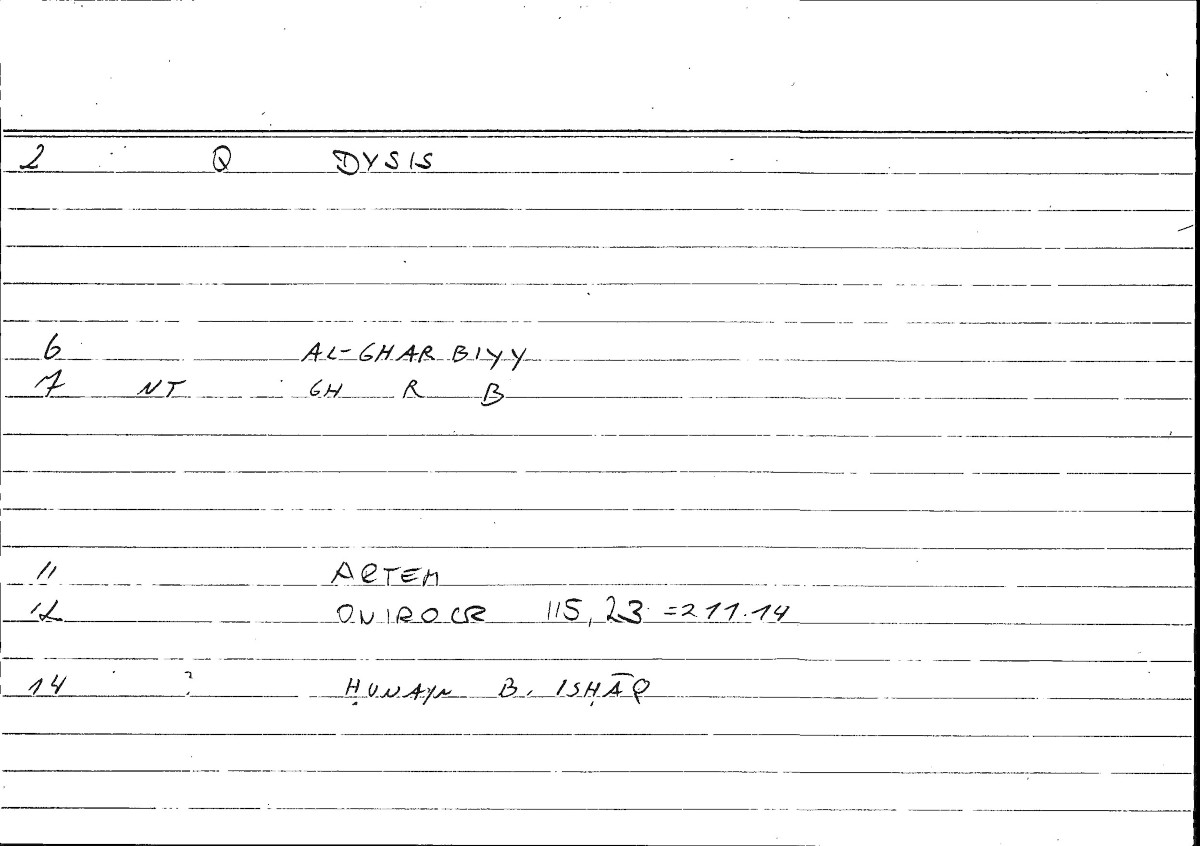 2 Q DYSIS
6 AL-GHARBIYY
7 NT GH R B
11 ARTEM
12 ONIROCR 115,23 =211.14
14 ? ḤUNAYN B. ISḤĀQ